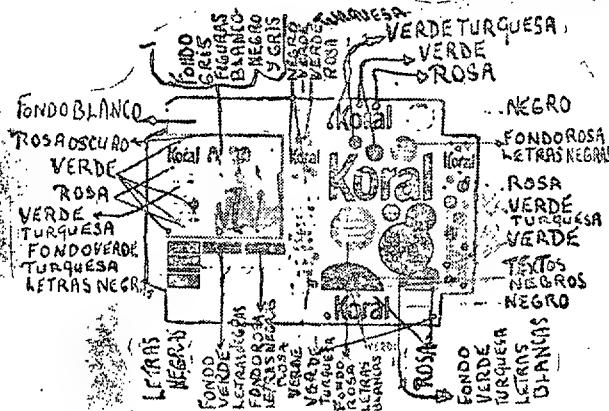 FONDO
GRIS
FIGURAS
BLANCO
NEGRO
Y GRIS
NEGRO
VERDE
VERDE
ROSA
TURQUESA
VERDE TURQUESA
VERDE
ROSA
FONDO BLANCO
ROSA OSCURO
VERDE
ROSA
VERDE
TURQUESA
FONDO VERDE
TURQUESA
LETRAS NEGRAS
NEGRO
FONDO ROSA
LETRAS NEGRAS
ROSA
VERDE
TURQUESA
VERDE
TEXTOS
NEGROS
NEGRO
Koral
Koral
Koral
Koral
Koral
Koral
LETRAS
NEGRAS
FONDO
VERDE
LETRAS NEGRAS
FONDO ROSA
LETRAS NEGRAS
ROSA
VERDE
VERDE
TURQUESA
FONDO
ROSA
LETRAS
BLANCAS
VERDE
ROSA
FONDO
VERDE
TURQUESA
LETRAS
BLANCAS